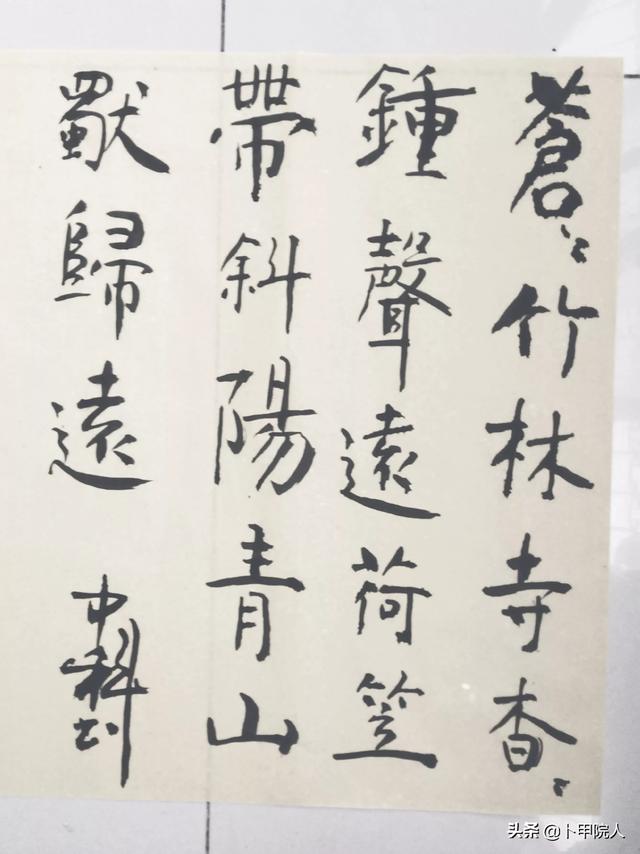 蒼々竹林寺杳々
鍾聲遠荷笠
帶斜陽青山
獨歸遠
中科
头条 @卜甲院人